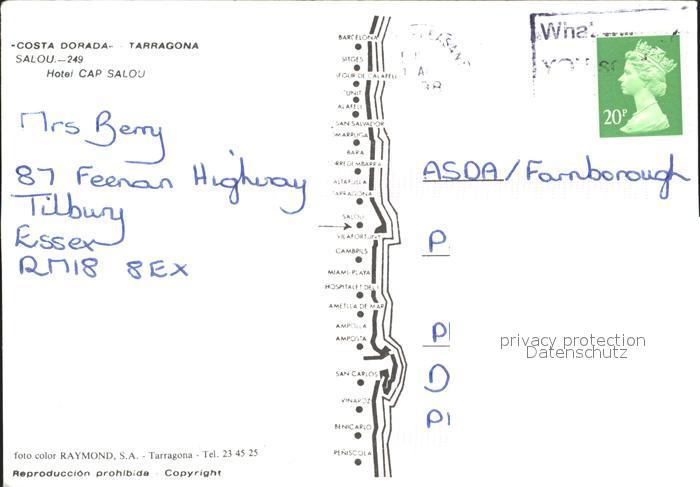 -COSTA DORADA- TARRAGONA
SALOU.-249
Hotel CAP SALOU
Mrs Berry
87 Feenan Highway
Tilbury
Essex
RM18 8EX
foto color RAYMOND, S.A. - Tarragona - Tel. 23 45 25
Reproducción prohibida - Copyright
BARCELONA
SITGES
SEGUR DE CALAFELL
CUNIT
CALAFELL
SAN SALVADOR
COMARRUGA
BARA
TORREDEMBARRA
ALTAFULLA
TARRAGONA
SALOU
VILAFORTUNY
CAMBRILS
MIAMI-PLAYA
HOSPITALET DEL I
AMETLLA DE MAR
AMPOLLA
AMPOSTA
SAN CARLOS
VINAROZ
BENICARLO
PEÑISCOLA
What
YOU
20P
ASDA/Farnborough
P.
D
privacy protection
Datenschutz